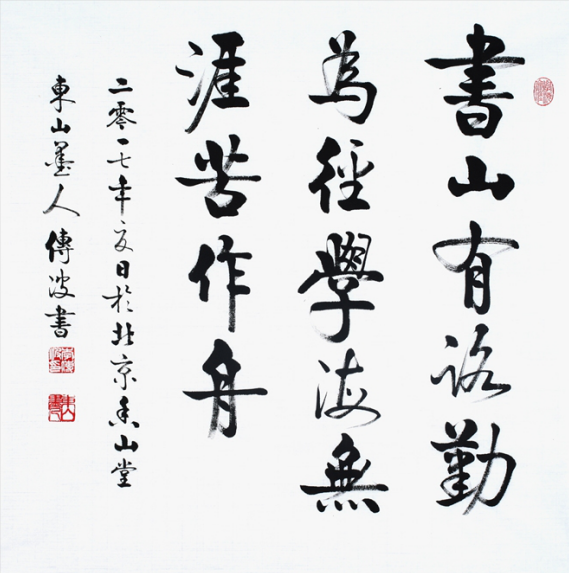 書山有路勤
為徑學海無
涯苦作舟
二零一七年夏日於北京東山堂
東山墨人傳波書